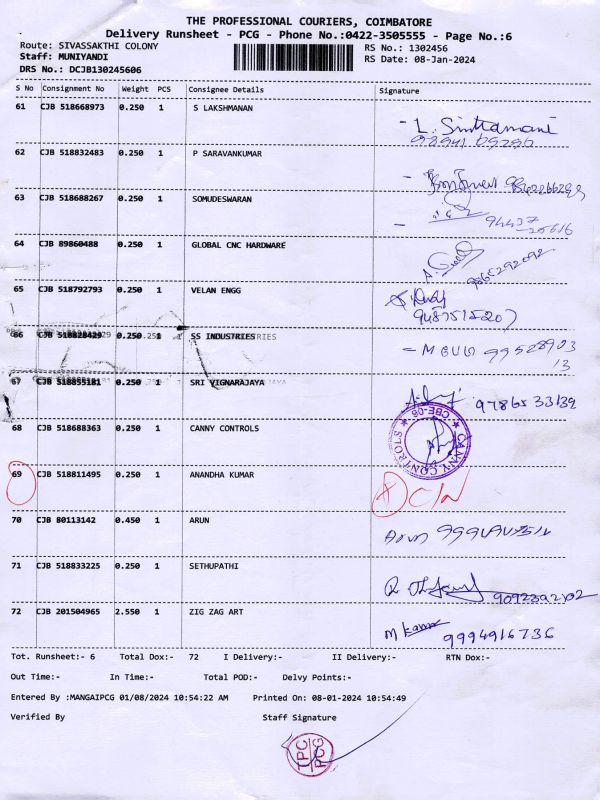 THE PROFESSIONAL COURIERS, COIMBATORE
Delivery Runsheet - PCG - Phone No.:0422-3505555 - Page No.:6
Route: SIVASSAKTHI COLONY RS No.: 1302456
Staff: MUNIYANDI RS Date: 08-Jan-2024
DRS No.: DCJB130245606
S No Consignment No Weight PCS Consignee Details Signature
61 CJB 518668973 0.250 1 S LAKSHMANAN
62 CJB 518832483 0.250 1 P SARAVANKUMAR
63 CJB 518688267 0.250 1 SOMUDESWARAN
94437
64 CJB 89860488 0.250 1 GLOBAL CNC HARDWARE
65 CJB 518792793 0.250 1 VELAN ENGG
66 CJB 518828429 0.250 1 SS INDUSTRIES
67 CJB 518855181 0.250 1 SRI VIGNARAJAYA
68 CJB 518688363 0.250 1 CANNY CONTROLS
CANNY CONTROLS CBE-06
69 CJB 518811495 0.250 1 ANANDHA KUMAR
70 CJB 80113142 0.450 1 ARUN
71 CJB 518833225 0.250 1 SETHUPATHI
72 CJB 201504965 2.550 1 ZIG ZAG ART
M Kumar 9994916736
Tot. Runsheet:- 6 Total Dox:- 72 I Delivery:- II Delivery:- RTN Dox:-
Out Time:- In Time:- Total POD:- Delvy Points:-
Entered By :MANGAIPCG 01/08/2024 10:54:22 AM Printed On: 08-01-2024 10:54:49
Verified By Staff Signature
TPC
PCG